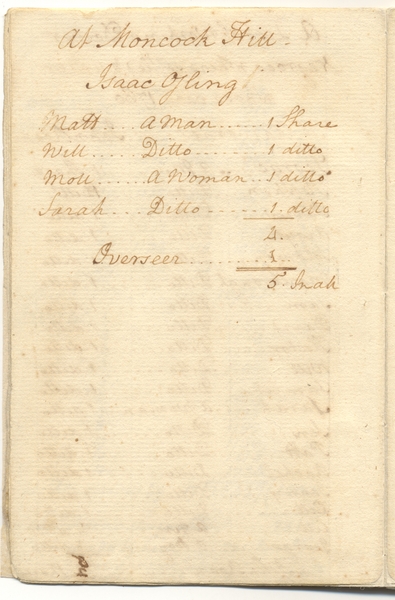 At Moncock Hill.
Isaac Osling
Matt .... a Man ...... 1 Share
Will .... Ditto ........ 1 ditto
Moll ..... a Woman .. 1 ditto
Sarah .. Ditto ........ 1 ditto
4.
Overseer ........... 1 ..
5. In all